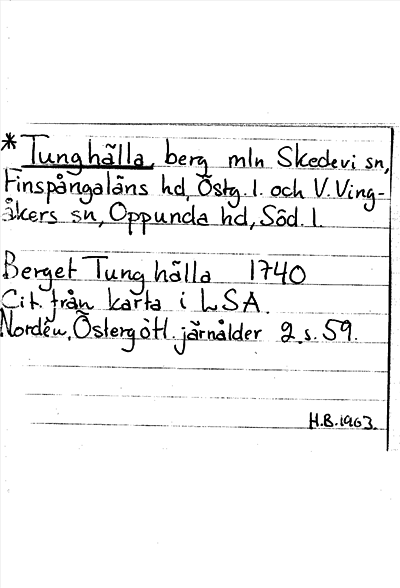 * Tunghälla, berg mln Skedevi sn,
Finspångaläns hd, Östg. l. och V. Ving-
åkers sn, Oppunda hd, Söd. l.
Berget Tung hälla 1740
Cit. från karta i LSA.
Nordén, Östergötl. järnålder 2 s. 59.
H.B. 1963.